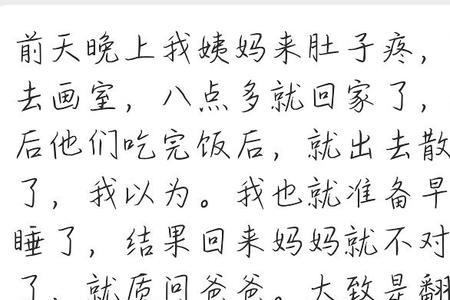 前天晚上我姨妈来肚子疼，
去画室，八点多就回家了，
后他们吃完饭后，就出去散
了，我以为。我也就准备早
睡了，结果回来妈妈就不对
了，就质问爸爸。大致是翻